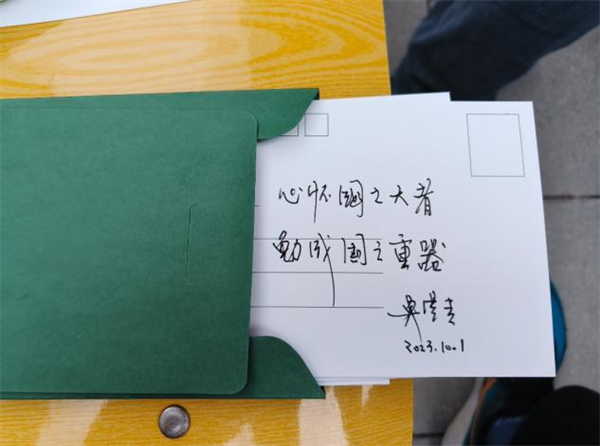 心怀国之大者
勉成国之重器
2023.10.1